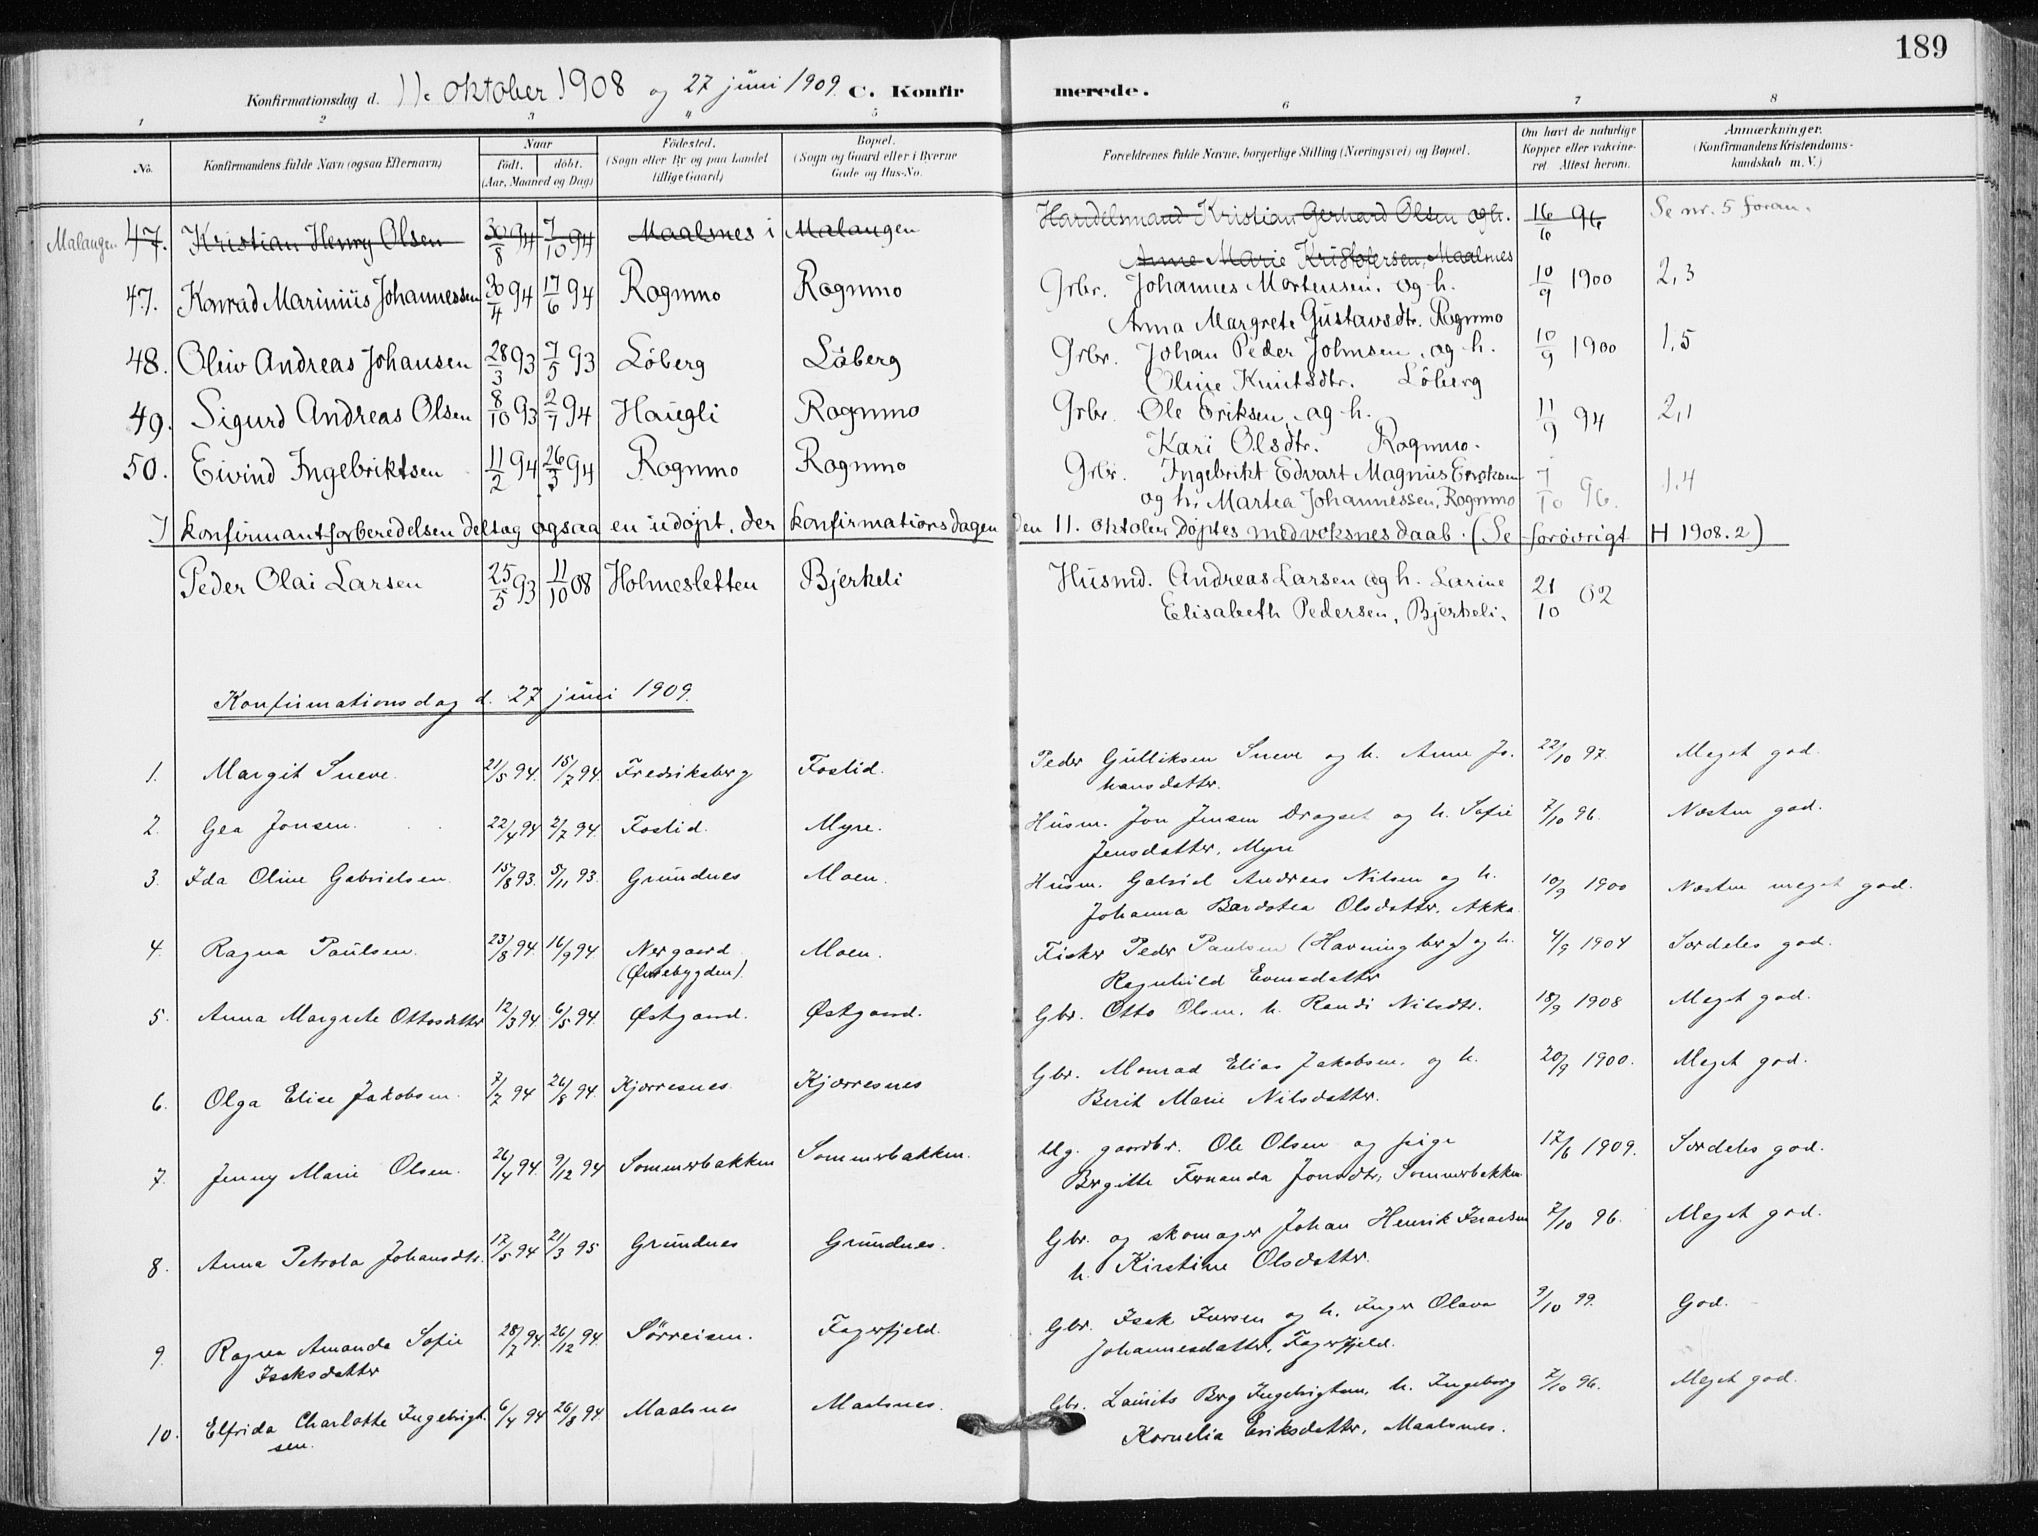 189
Konfirmationsdag d. 11. oktober 1908 og 27 juni 1909. C. Konfirmerede.
1 2 3 4 5 6 7 8
No. Konfirmandens fulde Navn (ogsaa Efternavn) Naar födt. döbt. (Aar, Maaned og Dag) Födested. (Sogn eller By og paa Landet tillige Gaard) Bopæl. (Sogn og Gaard eller i Byerne Gade og Hus-No. Forældrenes fulde Navne, borgerlige Stilling (Næringsvei) og Bopæl. Om havt de naturlige Kopper eller vakcineret Attest herom. Anmærkninger. (Konfirmandens Kristendomskundskab m. V.)
Malangen 47. Kristian Henry Olsen 30/8 94 7/10 94 Maalsnes i Malangen Handelsmand Kristian Gerhard Olsen og h. 16/6 96 Se nr. 5 foran.
Anne Marie Kristofersen, Maalnes
47. Konrad Marinius Johannessen 30/4 94 17/6 94 Rognmo Rognmo Grbr. Johannes Mortensen, og h. 10/9 1900 2,3
Anna Margrete Gustavsdtr. Rognmo
48. Oleiv Andreas Johansen 28/3 93 7/5 93 Löberg Löberg Grbr. Johan Peder Johnsen, og h. 10/9 1900 1,5
Oline Knutsdtr. Löberg
49. Sigurd Andreas Olsen 8/10 93 2/7 94 Haugli Rognmo Grbr. Ole Eriksen, og h. 11/9 94 2,1
Kari Olsdtr. Rognmo.
50. Eivind Ingebriktsen 11/2 94 26/3 94 Rognmo Rognmo Grbr. Ingebrikt Edvart Magnus Eriksen 7/10 96. 1.4
og h. Martea Johannessen, Rognmo
I konfirmantforberedelsen deltog ogsaa en udøpt, der konfirmationsdagen den 11. oktober døptes med voksnes daab. (Se forøvrigt H 1908.2)
Peder Olai Larsen 25/5 93 11/10 08 Holmesletten Bjerkeli Husmd. Andreas Larsen og h. Larine 21/10 02
Elisabeth Pedersen, Bjerkeli.
Konfirmationsdag d. 27 juni 1909.
1. Margit Sneve. 21/5 94. 15/7 94. Fredriksberg Fostid. Peder Gulliksen Sneve og h. Anne Jo- 22/10 97. Meget god.
hansdatter.
2. Gea Jonsen. 22/4 94 2/7 94. Fostid. Myre. Husm. Jon Jensen Dragset og h. Sofie 7/10 96. Næsten god.
Jensdatter, Myre
3. Ida Oline Gabrielsen 15/8 93. 5/11 93. Grundnes Moen. Husm. Gabriel Andreas Nilsen og h. 10/9 1900 Næsten meget god.
Johanna Bardotea Olsdatter, Akka.
4. Ragna Paulsen. 23/8 94. 16/9 94. Nergaard Moen. Fisker Peder Paulsen (Havningberg) og h. 4/9 1904 Særdeles god.
(Øvrebygden). Ragnhild Evensdatter
5. Anna Margrete Ottosdatter 12/3 94. 6/5 94. Østgaard. Østgaard. Gbr. Otto Olsen, h. Randi Nilsdtr. 18/9 1908 Meget god.
6. Olga Elise Jakobsen. 7/7 94 26/8 94. Kjærresnes. Kjærresnes Gbr. Monrad Elias Jakobsen, og h. 20/9 1900. Meget god.
Berit Marie Nilsdatter.
7. Jenny Marie Olsen. 26/4 94. 9/12 94 Sommerbakken Sommerbakken. Ug. gaardbr. Ole Olsen og pige 17/6 1909. Særdeles god.
Brgitte Fernanda Jonsdtr, Sommerbakken
8. Anna Petrola Johansdtr. 17/5 94 21/3 95 Grundnes Grundnes. Gbr. og skomager Johan Henrik Israelsen 7/10 96. Meget god.
h. Kirstine Olsdatter.
9. Ragna Amanda Sofie 28/7 94. 26/12 94. Sørreisen. Fagerfjeld. Gbr. Isak Iversen og h. Inger Olava 9/10 99. God.
Isaksdatter Johannesdatter, Fagerfjeld.
10. Elfrida Charlotte Ingebrigt- 6/4 94 26/8 94. Maalsnes Maalsnes. Gbr. Laurits Berg Ingebrigtsen, h. Ingeborg 7/10 96. Meget god.
sen. Kornelia Eriksdatter, Maalsnes.